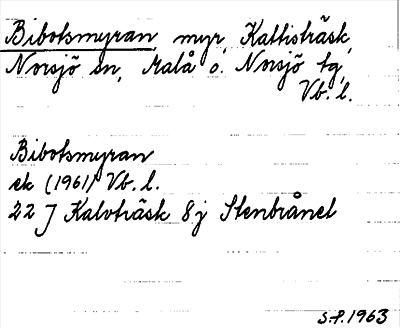 Bibotsmyran, myr, Kattisträsk,
Norsjö sn, Malå o. Norsjö tg,
Vb. l.
Bibotsmyran
ek (1961) Vb. l.
22 J Kalvträsk 8j Stenbrånet
S.P. 1963